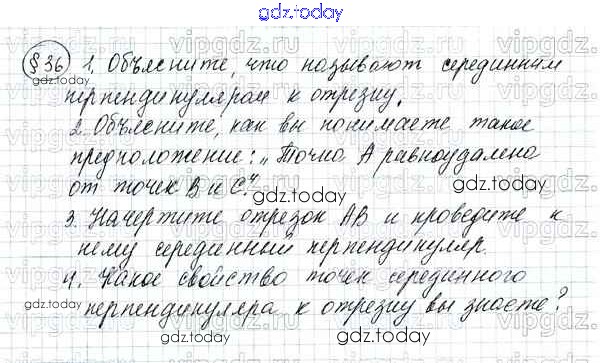 gdz.today
§ 36 1. Объясните, что называют серединным
перпендикуляром к отрезку.
2. Объясните, как вы понимаете такое
предположение: „Точка A равноудалена
от точек B и C."
3. Начертите отрезок AB и проведите к
нему серединный перпендикуляр.
4. Какое свойство точек серединного
перпендикуляра к отрезку вы знаете?
gdz.today
gdz.today
gdz.today
gdz.today
gdz.today